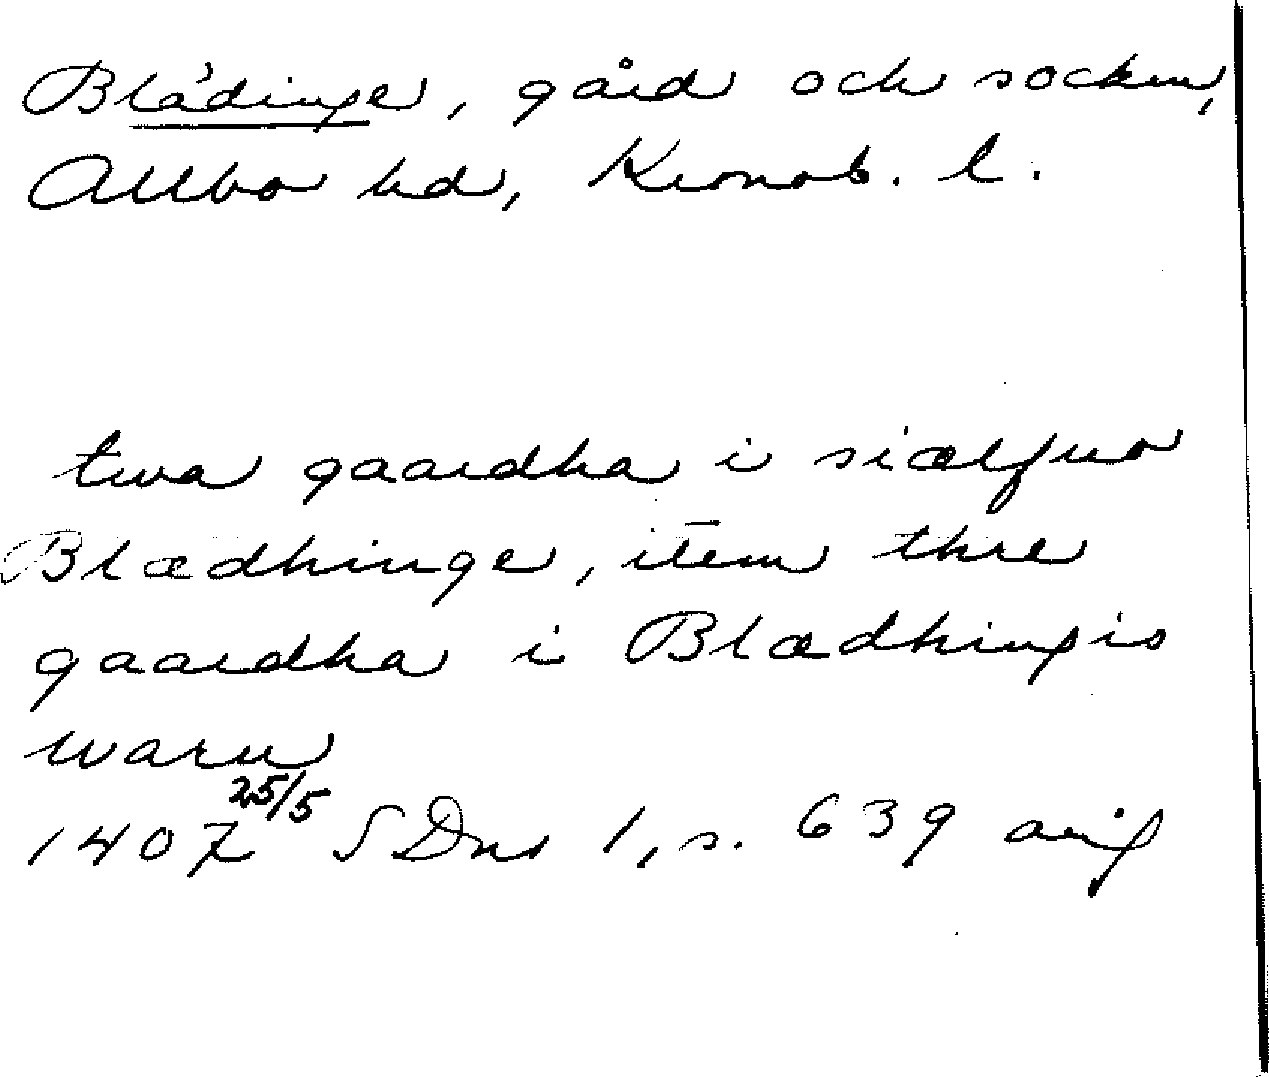 Blädinge, gård och socken,
Allbo hd, Kronob. l.
twa gaardha i siælfwo
Blædhinge, item thre
gaardha i Blædhingis
waru
1407 25/5 SDns 1, s. 639 avs